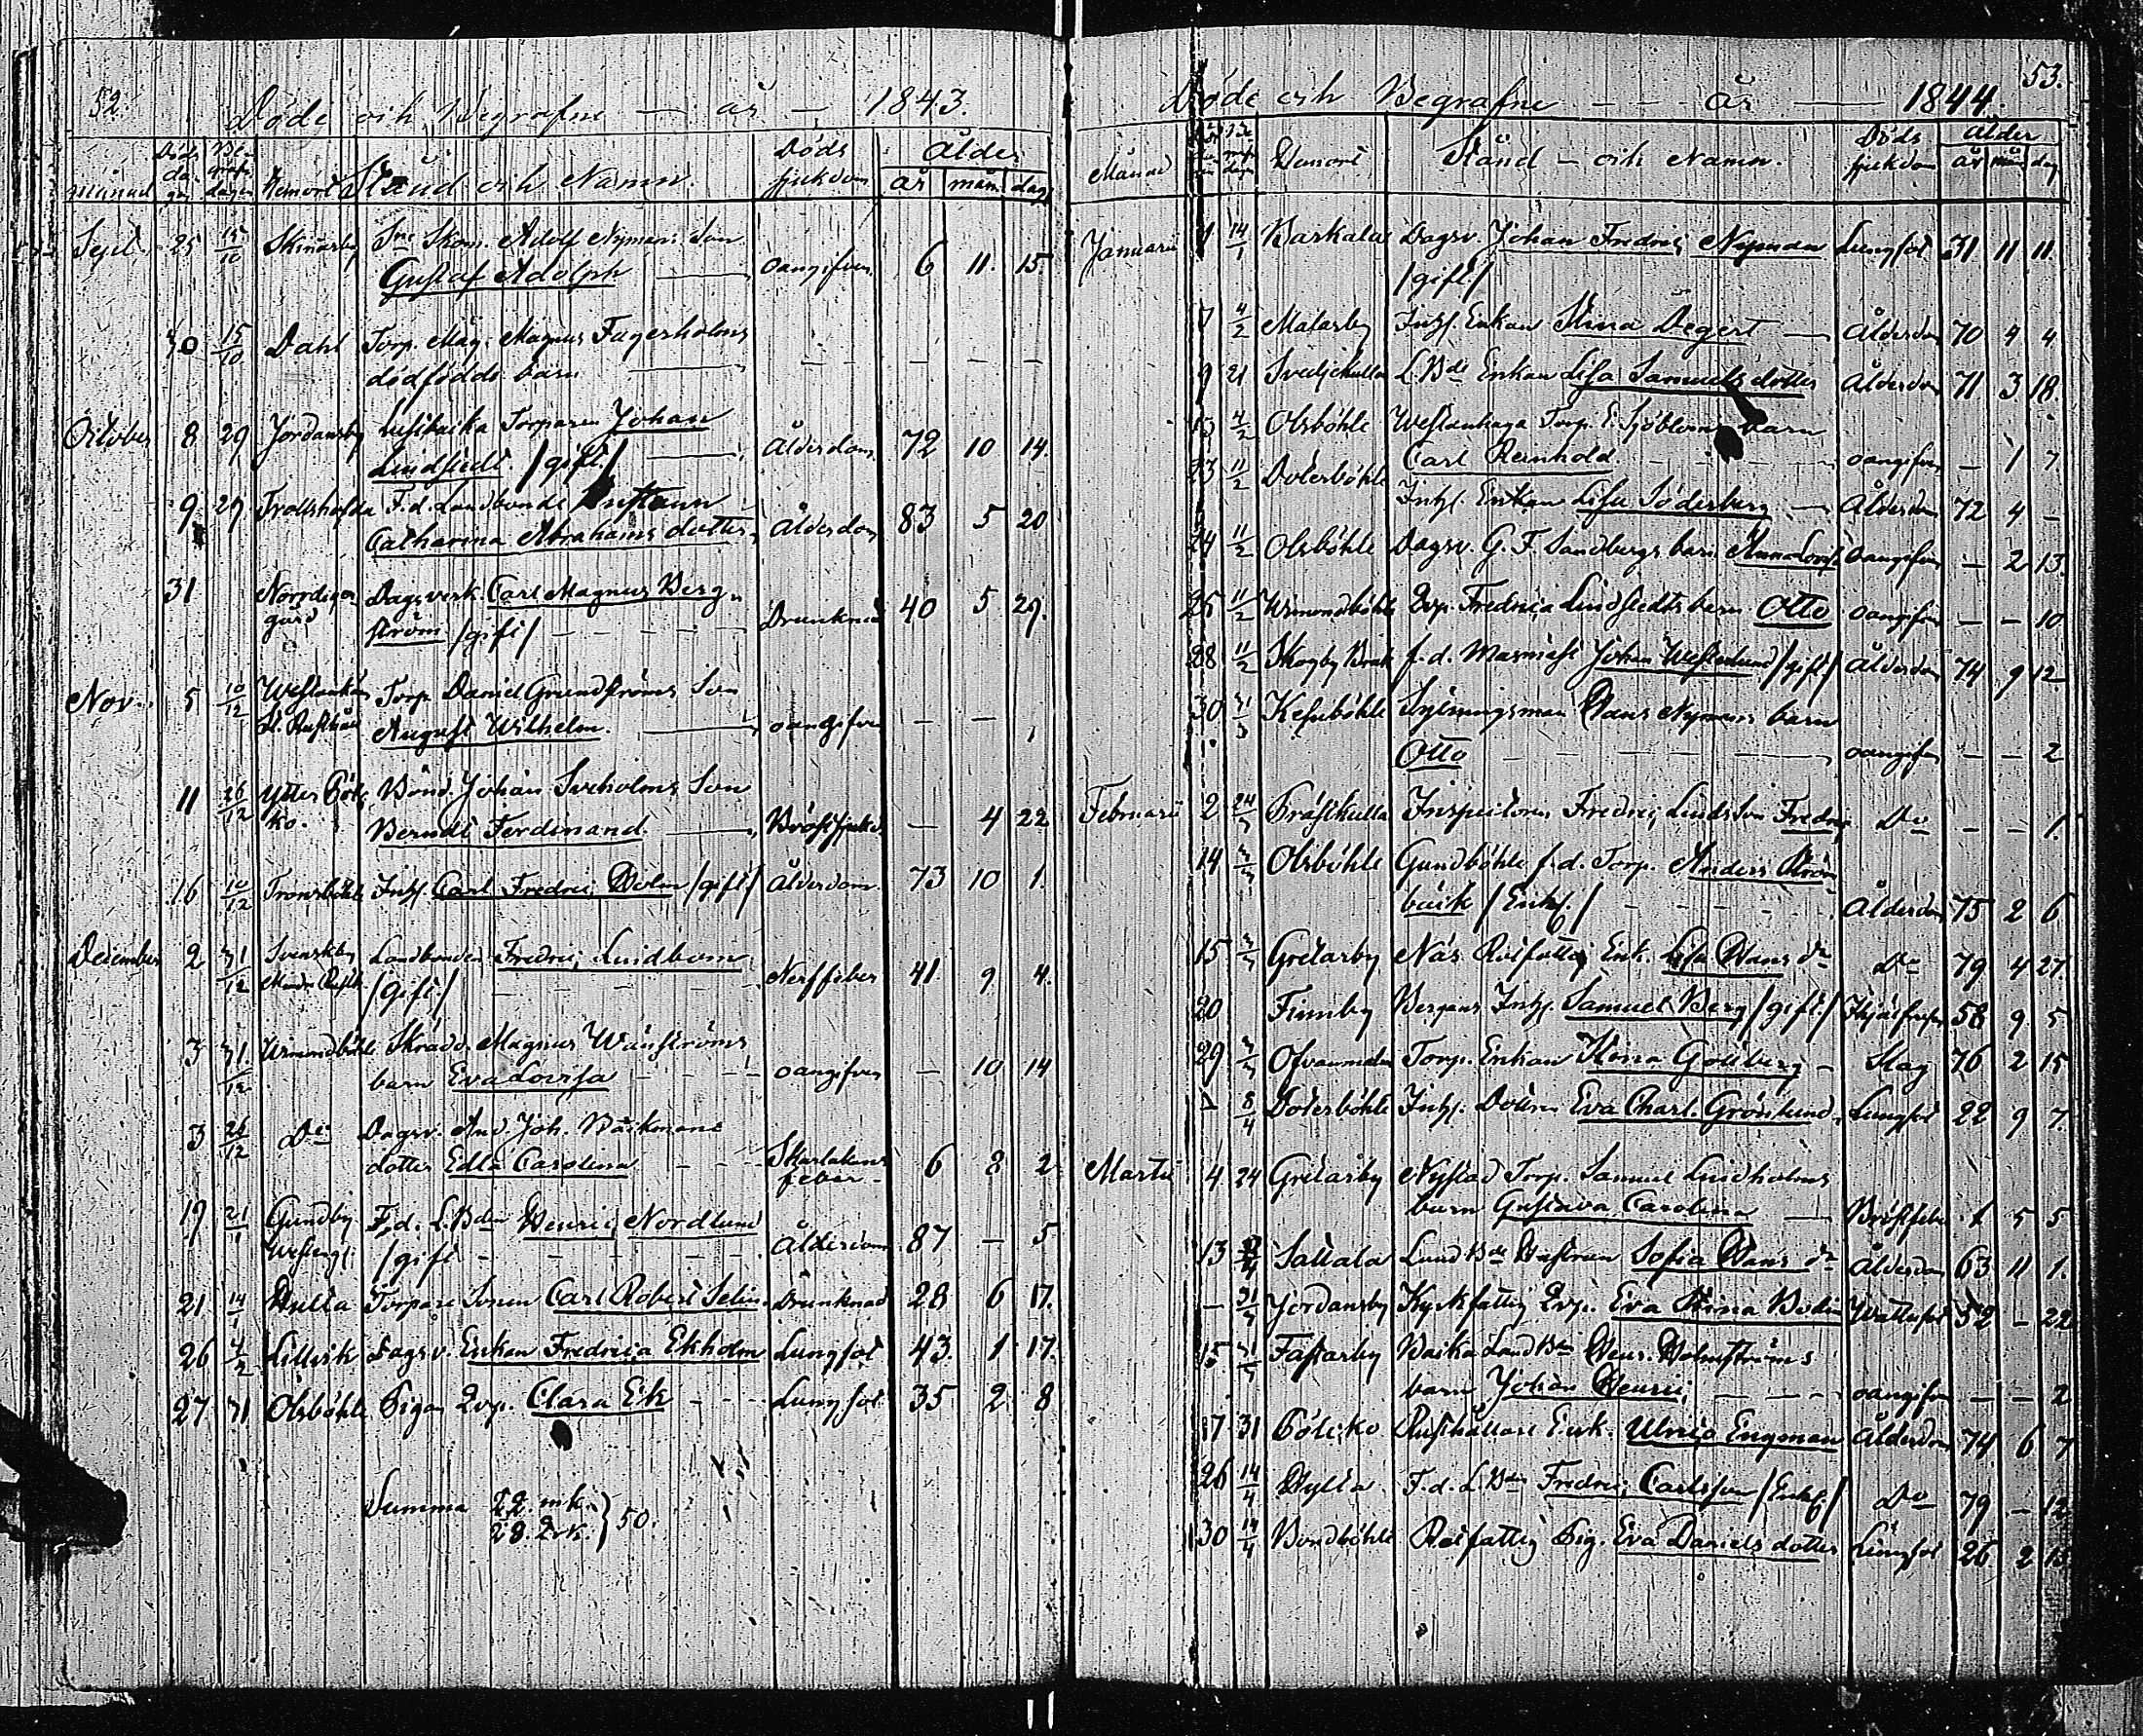 52.
Döde och Begrafne — år — 1843.
Månad Döds dagen Begrafn. dagen Hemort Stånd och Namn. Döds sjukdom Ålder
år mån. dag.
Sept. 25 15/10 Skinarby Sne Skom. Adolf Nymans Son
Gustaf Adolph oangifven 6 11. 15.
30 15/10 Dahl Torp. Måg. Magnus Fagerholms
dödfödde barn — — — —
October 8 29 Jordansby Torparen Johan
Lindstedt. /gift/ Ålderdom. 72 10 14.
9. 29 Trollshofda F.d. Landbonde Hustrun
Catharina Abrahams dotter Ålderdom 83 5 20
31 Norrdiger gård Dagsverk. Carl Magnus Berg-
ström /gift/ Drunknad 40 5 29.
Nov. 5 10/12 Torp. Daniel Grundströms Son
August Wilhelm. oangifven — — 1
11 26/12 Ytter Böle ko. Bond. Johan Sveholms Son
Berndt Ferdinand. Bröstsjukd. — 4 22
16 10/12 Tronsböhle Inhs. Carl Fredric Holm /gift/ Ålderdom. 73 10 1.
December 2 31/12 Svenskby Landbonden Fredric Lindbom
/gift/ Nerffeber 41. 9 4.
3 31/12 Skrädd. Magnus Wänströms
barn Eva Lovisa oangifven — 10 14
3 26/12 Do Dagsv. And. Joh. Bäckmans
dotter Edla Carolina Skarlakans feber 6 8 2
19 21/1 Gundby F.d. L.Bden Henric Nordlund
/gift Ålderdom 87 — 5
21 14/1 Hulta Torpare Sonen Carl Robert Selin. Drunknad 28 6 17.
26 4/2 Lillvik Dagsv. Enkan Fredrica Ekholm Lungsot 43. 1 17.
27 31 Olsböhle Pigan Qvp. Clara Ek Lungsot 35 2 8
Summa 22. mk. 28. Qvk. } 50.
53.
Döde och Begrafne — — år — 1844.
Månad Hemort Stånd — och Namn. Döds sjukdom Ålder
år mån dag
Januari 1 14/1 Barkala Dagsv. Johan Fredric Nyman Lungsot 31 11 11
/gift/
7 4/2 Malarby Inhs. Enkan Stina Degert Ålderdom 70 4 4
9 21 Svedjekulla L.Bde Enkan Lisa Samuels dotter Ålderdom 71 3 18.
15 4/2 Olsböhle Westankaga Torp. E. Sjöbloms barn
Carl Reinhold oangifven — 1 7
23 11/2 Doterböhle Inhs. Enkan Lisa Söderberg Ålderdom 72 4 —
24 11/2 Olsböhle Dagsv. G. F. Sandbergs barn Anna Lovisa oangifven — 2 13.
25 11/2 Qvp. Fredrica Lindstedts barn Otto oangifven — — 10
28 11/2 Skogby Bruk f.d. Masmäst. Johan Westerlund /gift/ Ålderdom 74 9 12
30 Hans Nymans barn
Otto oangifven — — 2
Februari 2 24/3 Prästkulla Inspectoren Fredric Linds Son Fredric Do — — 1.
14 Olsböhle Gundböhle f.d. Torp. Anders Ström-
bäck /Enkl./ Ålderdom 75 2 6
15 Gretarby Näs Rotfattig Enk. Lisa Hans dr Do 79 4 27
20 Finnby Inhs. Samuel Berg /gift/ 58 9 5
29 Torp. Enkan Stina Gottberg Slag 76 2 15
— 8/4 Doterböhle Inhs. Dottren Eva Charl. Grönlund Lungsot 22 9 7.
Martii 4 24 Gretarby Nystad Torp. Samuel Lindholms
barn Gustava Carolina Bröstfeber 1 5 5
13 Sattala Land Bde Hustrun Sofia Hans dr Ålderdom 63 11 1.
— 31 Jordansby Kyrkfattig Qvp. Eva Stina Bodin Wattusot 52 — 22
15 31 Fastarby Land Bden Henr. Holmströms
barn Johan Henric oangifven — — 2
17 31 Böleko Rusthållare Enk. Ulrica Engman Ålderdom 74 6 7
26 14/4 Hylta F.d. L.Bden Fredric Carlsson /Enkl/ Do 79 — 12
30 14/4 Bondböhle Rotfattig Pig. Eva Daniels dotter Lungsot 26 2 13